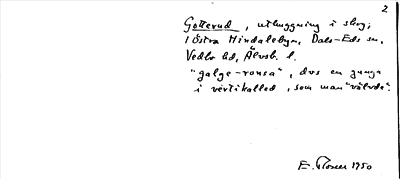 2
Gotterud, uthuggning i skog;
i Östra Hindalebyn, Dals-Eds sn,
Vedbo hd, Älvsb. l.
"galge-ronsa", dvs en gunga
i vertikalled, som man "välvde".
E. 1950